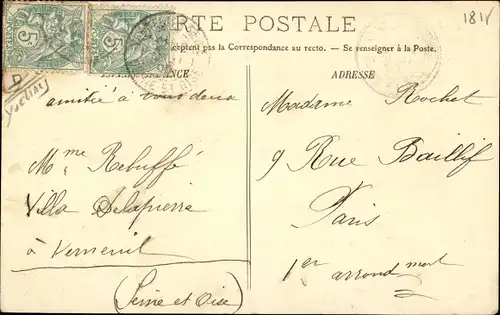 CARTE POSTALE
acceptent pas la Correspondance au recto. — Se renseigner à la Poste.
ADRESSE
1818
5c
5c
D
Yvelines
amitié à vous deux
Mme Rebuffé
Villa Delapierre
à Verneuil
(Seine et Oise)
Madame Rochet
9 Rue Baillif
Paris
1er arrondmert